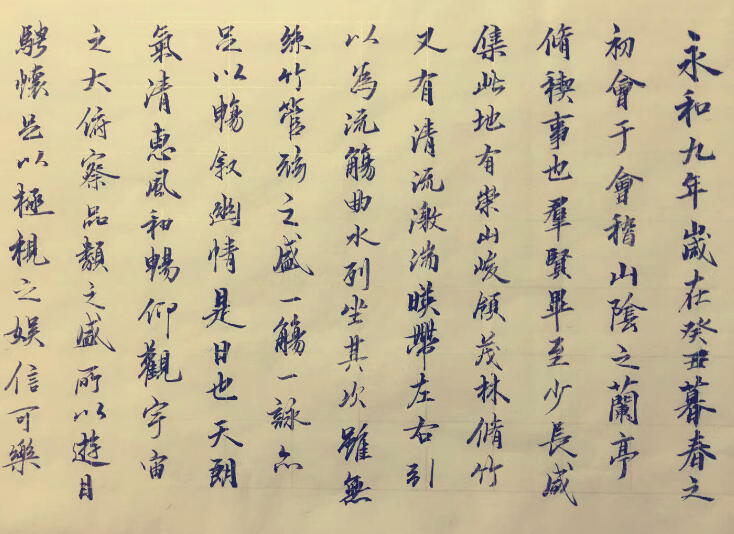 永和九年歲在癸丑暮春之
初會于會稽山陰之蘭亭
脩稧事也羣賢畢至少長咸
集此地有崇山峻領茂林脩竹
又有清流激湍暎帶左右引
以為流觴曲水列坐其次雖無
絲竹管弦之盛一觴一詠亦
足以暢叙幽情是日也天朗
氣清惠風和暢仰觀宇宙
之大俯察品類之盛所以遊目
騁懷足以極視之娛信可樂